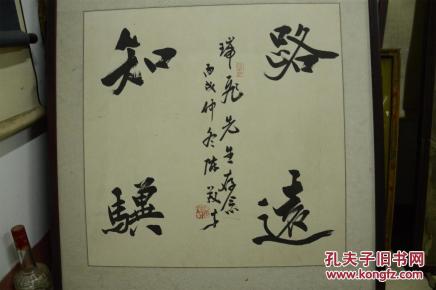 路遠
知驥
瑞飛先生存念
丙戌仲冬陈毅书
孔夫子旧书网
www.kongfz.com